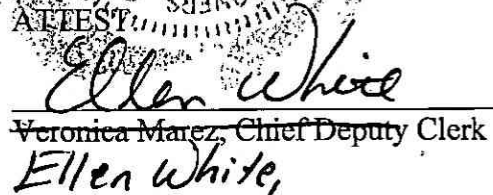 ATTEST:
Ellen White
Veronica Marez, Chief Deputy Clerk
Ellen White,